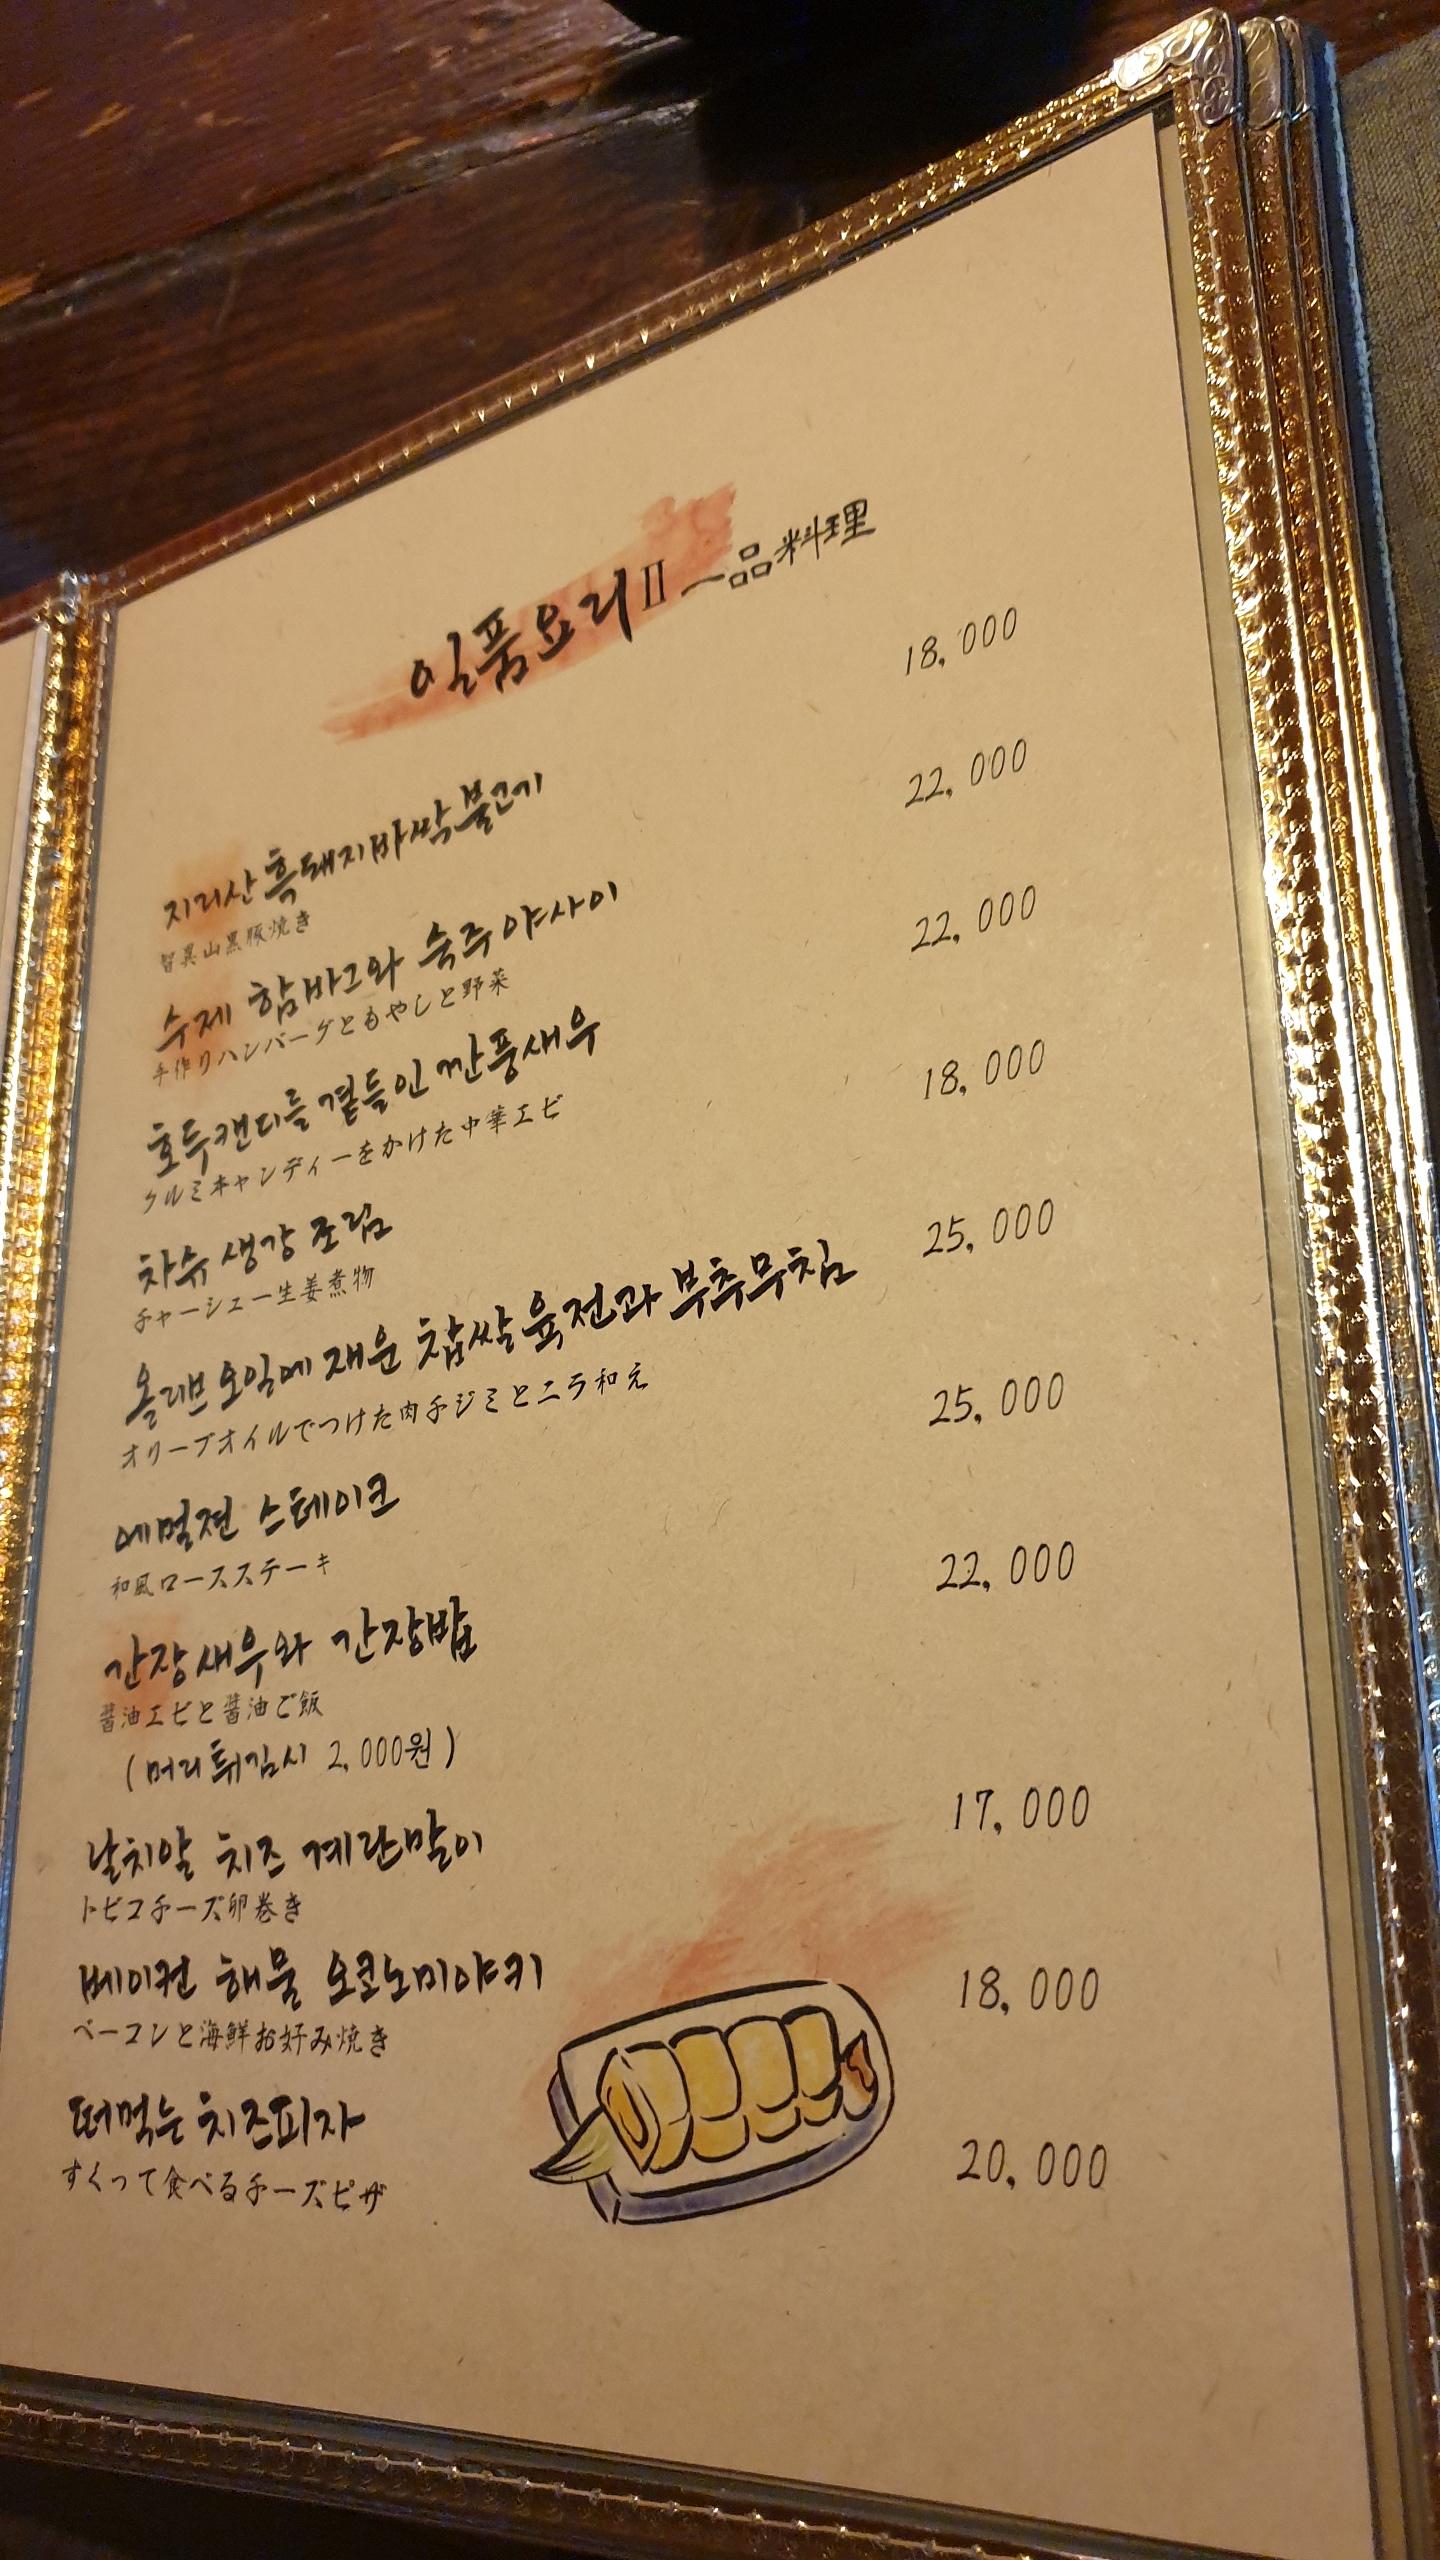 일품요리 II 一品料理
지리산 흑돼지바싹불고기 18,000
智異山黒豚焼き
수제 함바그와 숙주 야사이 22,000
手作りハンバーグともやしと野菜
호두캔디를 곁들인 깐풍새우 22,000
クルミキャンディーをかけた中華エビ
차슈 생강 조림 18,000
チャーシュー生姜煮物
올리브 오일에 재운 찹쌀 육전과 부추무침 25,000
オリーブオイルでつけた肉チジミとニラ和え
에멀젼 스테이크 25,000
和風ロースステーキ
간장새우와 간장밥 22,000
醤油エビと醤油ご飯
(머리 튀김시 2,000원)
날치알 치즈 계란말이 17,000
トビコチーズ卵巻き
베이컨 해물 오코노미야키 18,000
ベーコンと海鮮お好み焼き
떠먹는 치즈피자 20,000
すくって食べるチーズピザ